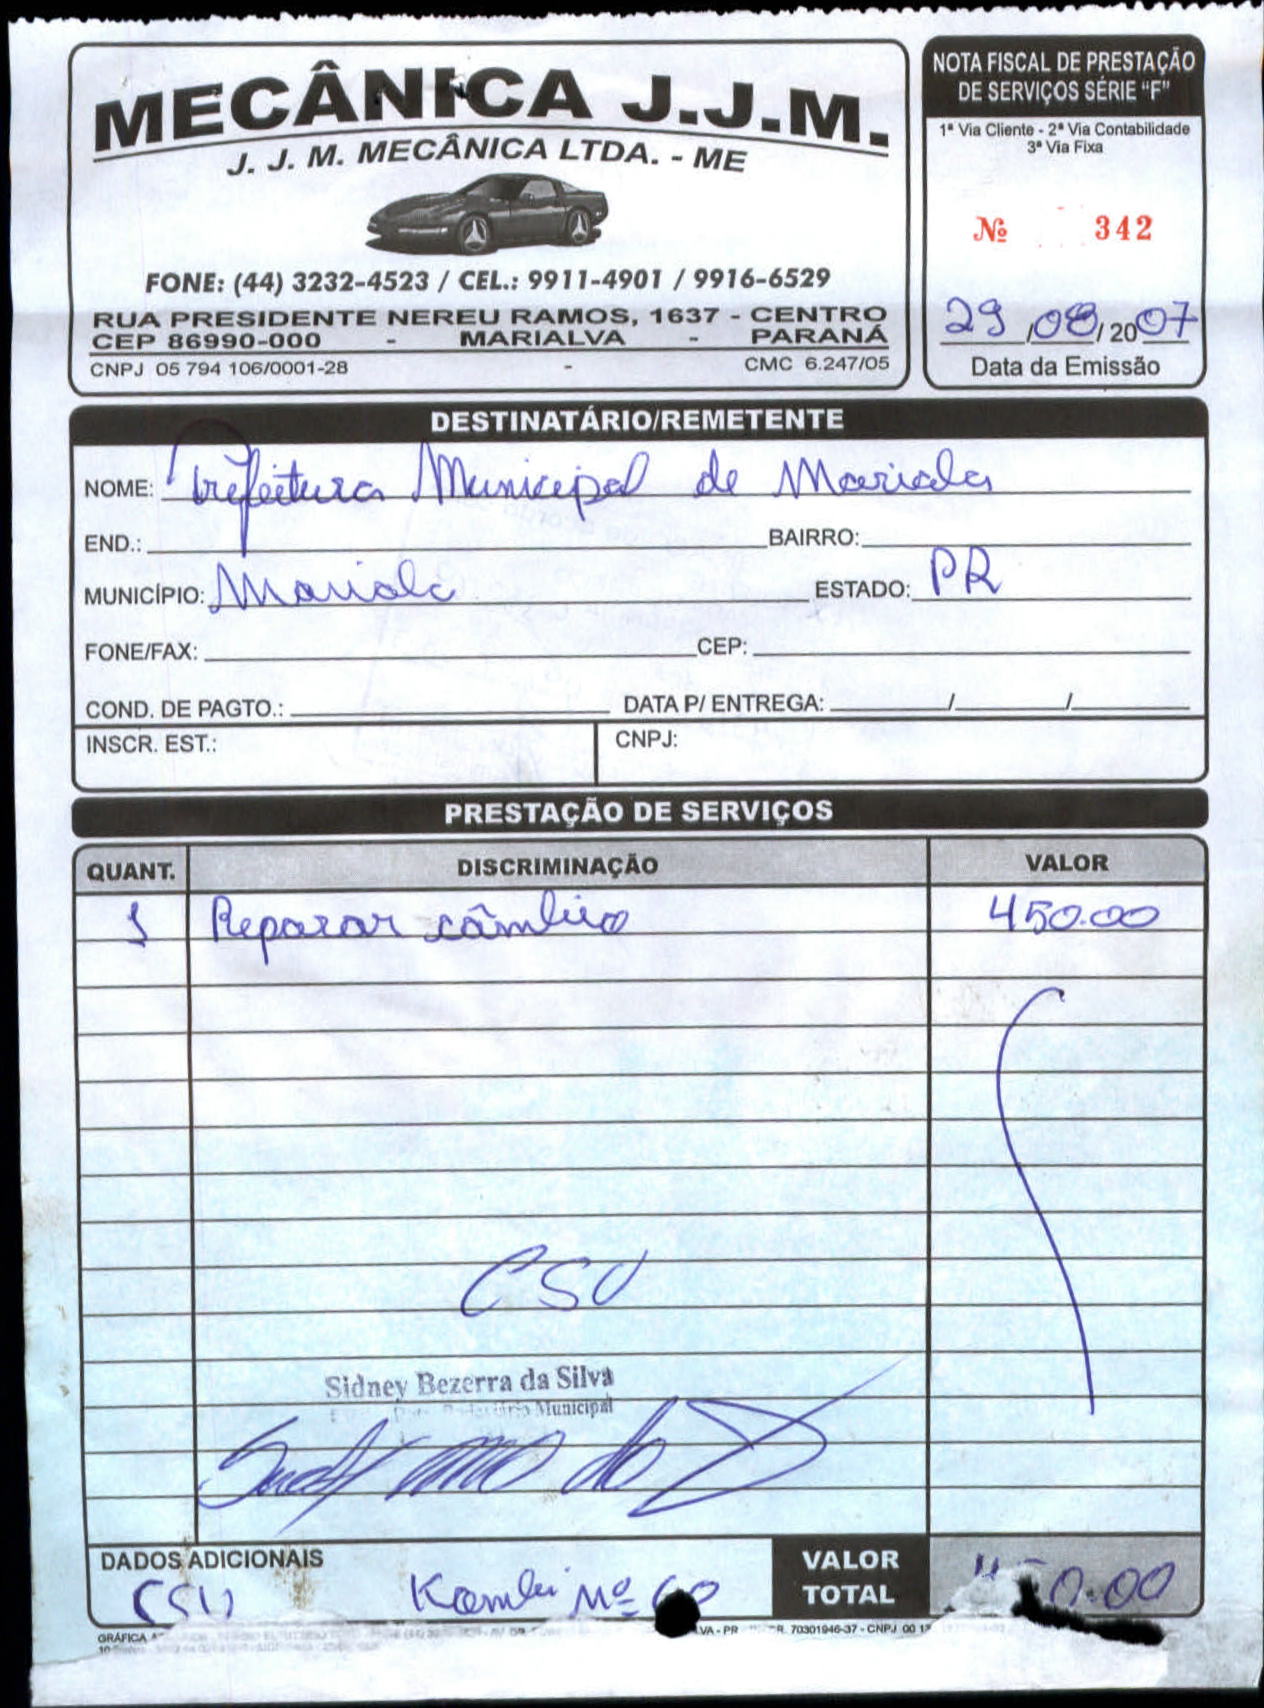 MECÂNICA J.J.M.
J. J. M. MECÂNICA LTDA. - ME
FONE: (44) 3232-4523 / CEL.: 9911-4901 / 9916-6529
RUA PRESIDENTE NEREU RAMOS, 1637 - CENTRO
CEP 86990-000 - MARIALVA - PARANÁ
CNPJ 05 794 106/0001-28 - CMC 6.247/05
NOTA FISCAL DE PRESTAÇÃO
DE SERVIÇOS SÉRIE "F"
1ª Via Cliente - 2ª Via Contabilidade
3ª Via Fixa
Nº 342
29/08/2007
Data da Emissão
DESTINATÁRIO/REMETENTE
NOME: Prefeitura Municipal de Mariala
END.: BAIRRO:
MUNICÍPIO: Mariala ESTADO: PR
FONE/FAX: CEP:
COND. DE PAGTO.: DATA P/ ENTREGA: / /
INSCR. EST.: CNPJ:
PRESTAÇÃO DE SERVIÇOS
QUANT. DISCRIMINAÇÃO VALOR
1 Reparar câmbio 450.00
CSU
Sidney Bezerra da Silva
Municipal
DADOS ADICIONAIS
CSU Kombi Nº 60
VALOR
TOTAL
GRÁFICA
VA - PR 70301946-37 - CNPJ 00